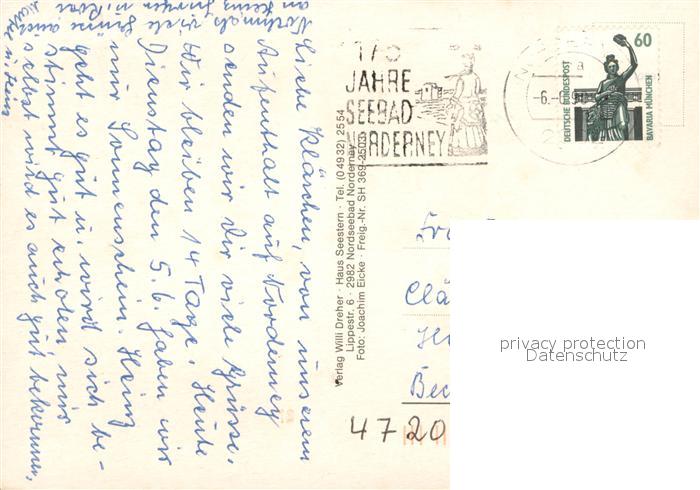 Liebe Klärchen, von unserem
Aufenthalt auf Norderney
senden wir Dir viele Grüsse.
Wir bleiben 14 Tage. Heute
Dienstag den 5.6. haben wir
nur Sonnenschein. Heinz
geht es gut u. wird sich be-
stimmt gut erholen mir
selbst wird es auch gut bekommen,
Nochmals viele Grüsse auch
an Heinz
JAHRE
SEEBAD
NORDERNEY
6.
60
DEUTSCHE BUNDESPOST
BAVARIA MÜNCHEN
Verlag Willi Dreher · Haus Seestern · Tel. (04932) 2554
Lippestr. 6 · 2982 Nordseebad Norderney
Foto: Joachim Eicke · Freig.-Nr. SH 369-2503
4720
privacy protection
Datenschutz